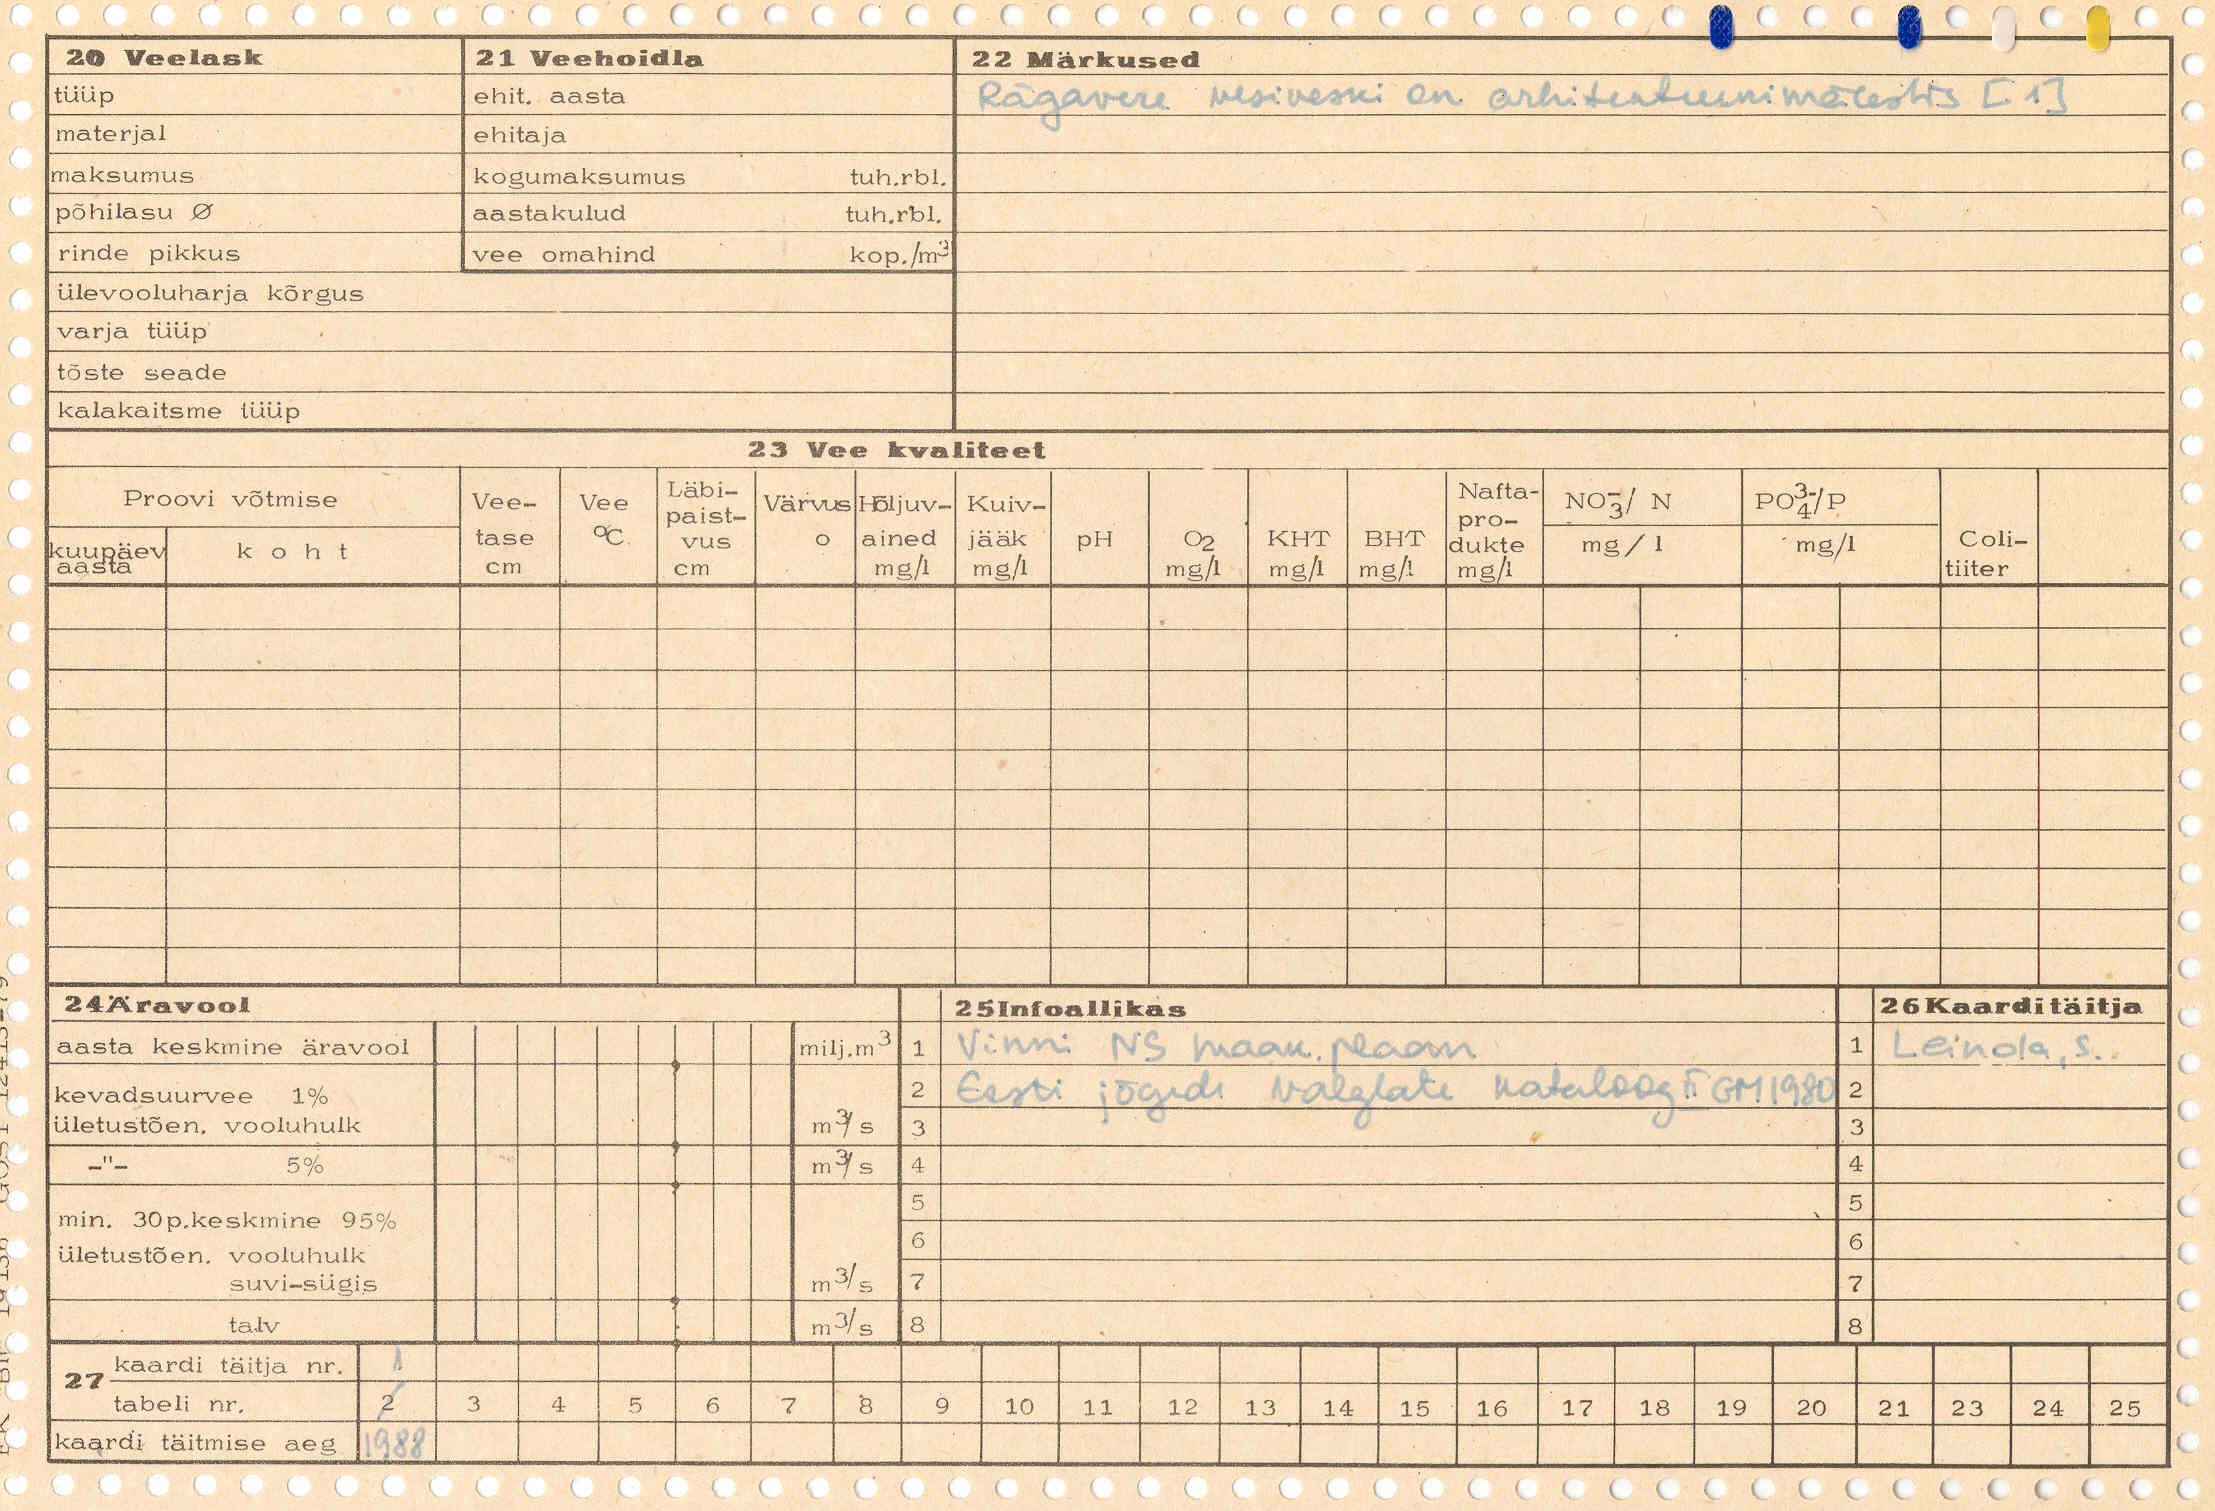 20 Veelask
tüüp
materjal
maksumus
põhilasu Ø
rinde pikkus
ülevooluharja kõrgus
varja tüüp
tõste seade
kalakaitsme tüüp
21 Veehoidla
ehit. aasta
ehitaja
kogumaksumus tuh.rbl.
aastakulud tuh.rbl.
vee omahind kop./m³
22 Märkused
Rägavere vesiveski on arhitektuurimälestis [1]
23 Vee kvaliteet
Proovi võtmise
kuupäev aasta
koht
Vee-
tase
cm
Vee
°C
Läbi-
paist-
vus
cm
Värvus
o
Hõljuv-
ained
mg/l
Kuiv-
jääk
mg/l
pH
O2
mg/l
KHT
mg/l
BHT
mg/l
Nafta-
pro-
dukte
mg/l
NO3-/ N
mg/l
PO4 3-/P
mg/l
Coli-
tiiter
24 Äravool
aasta keskmine äravool milj.m³
kevadsuurvee 1%
ületustõen. vooluhulk m³/s
-"- 5% m³/s
min. 30p.keskmine 95%
ületustõen. vooluhulk
suvi-sügis m³/s
talv m³/s
25 Infoallikas
1 Vinni NS maak. plaan
2 Eesti jõgede valglate kataloog II GM 1980
3
4
5
6
7
8
26 Kaardi täitja
1 Leinola, S.
2
3
4
5
6
7
8
27 kaardi täitja nr. 1
tabeli nr. 2 3 4 5 6 7 8 9 10 11 12 13 14 15 16 17 18 19 20 21 23 24 25
kaardi täitmise aeg 1988